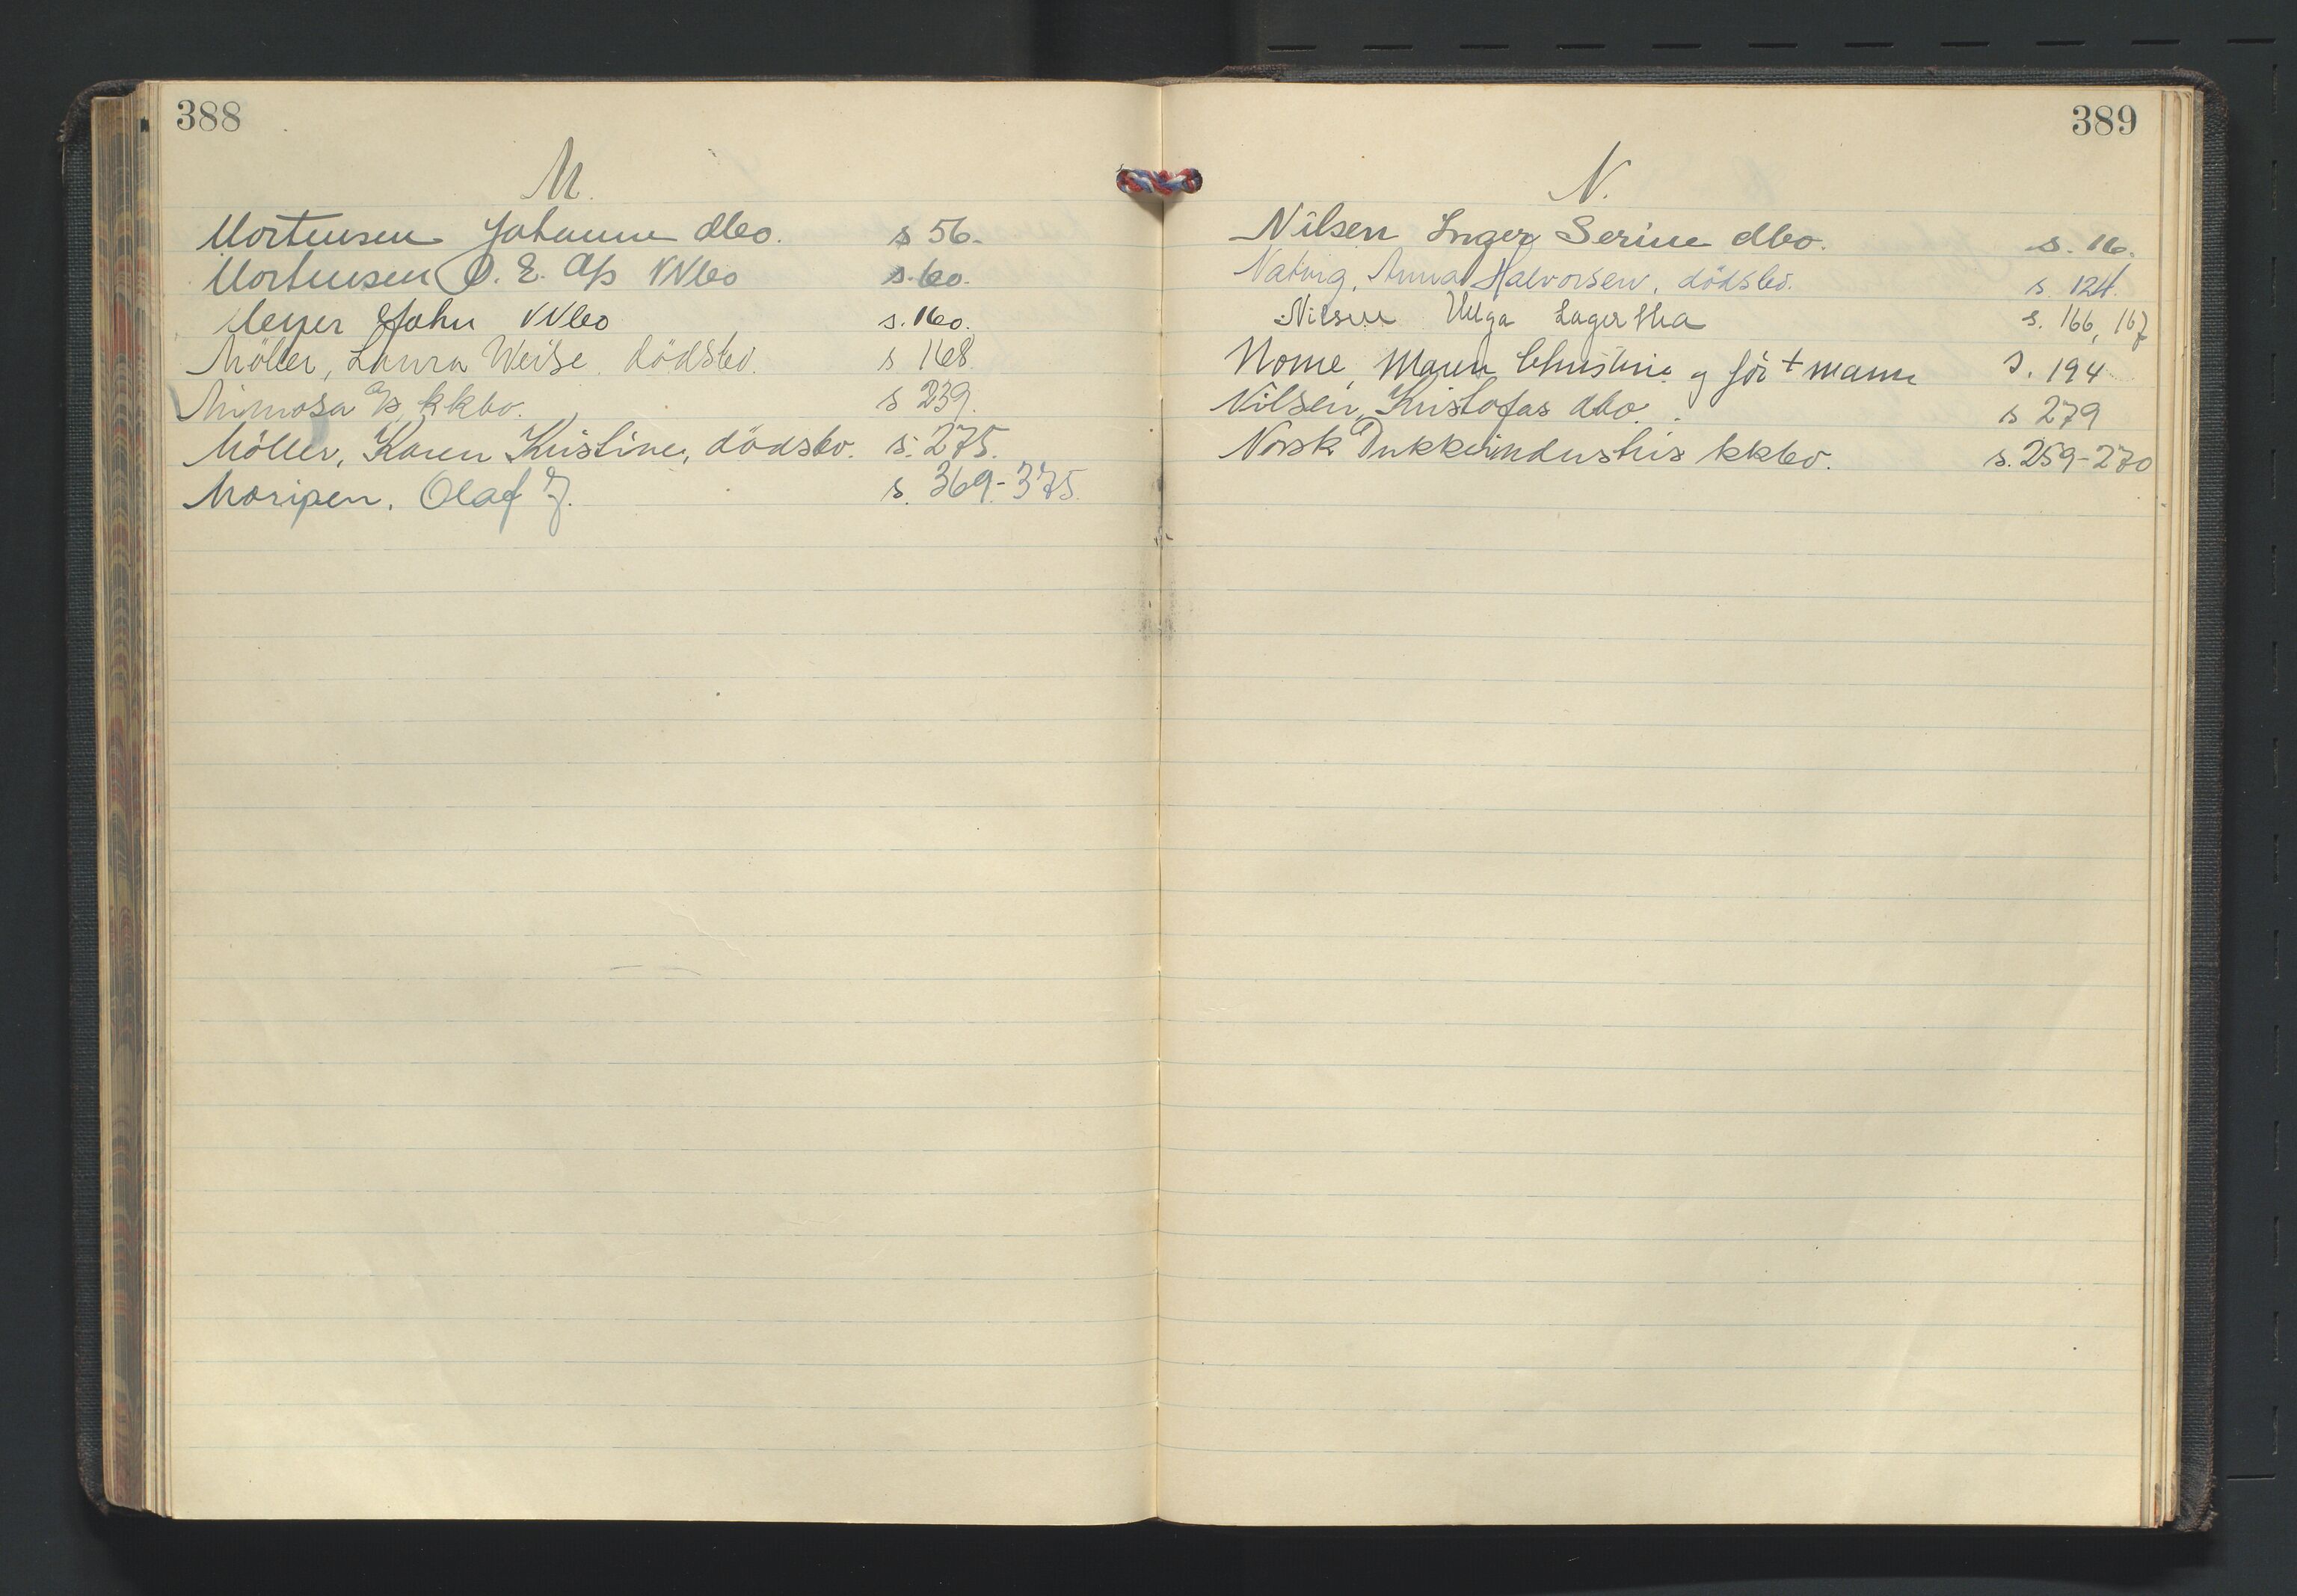 388
M.
Mortensen Johanne dbo. s 56.
Mortensen O. E. A/s VVbo s. 60.
Meyer John VVbo s. 160.
Möller, Laura Weise. dödsbo. s 168.
Mimosa A/s, kkbo. s 239.
Möller, Karen Kristine, dödsbo. s. 275.
Moripen, Olaf J. s. 369-375.
389
N.
Nilsen Inger Serine dbo. s. 16.
Natvig, Anna Halvorsen, dödsbo. s. 124.
Nilsen Helga Lagertha s. 166, 167
Nome, Maren Christine og før + mann s. 194
Nilsen, Kristofas dbo. s 279
Norsk Dukkeindustri kkbo. s. 259-270